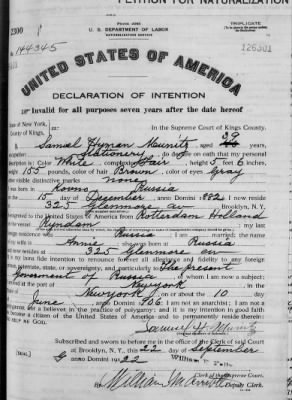 PETITION FOR NATURALIZATION
TRIPLICATE
U. S. DEPARTMENT OF LABOR
NATURALIZATION SERVICE
2300
No. 144345
126301
UNITED STATES OF AMERICA
DECLARATION OF INTENTION
Invalid for all purposes seven years after the date hereof
State of New York,
County of Kings,
ss:
In the Supreme Court of Kings County.
I, Samuel Hyman, aged 39 years,
occupation Stationery, do declare on oath that my personal
description is: Color White, complexion Fair, height 5 feet 6 inches,
weight 155 pounds, color of hair Brown, color of eyes Gray
other visible distinctive marks none
I was born in Kovno Russia
on the 15 day of December, anno Domini 1882; I now reside
at 325 Glenmore av Brooklyn, N. Y.
I emigrated to the United States of America from Rotterdam Holland
on the vessel Ryndam; my last
foreign residence was Russia; I am married; the name
of my wife is Annie; she was born at Russia
and now resides at 325 Glenmore av
It is my bona fide intention to renounce forever all allegiance and fidelity to any foreign
prince, potentate, state, or sovereignty, and particularly to The present
Government of Russia of whom I am now a subject;
I arrived at the port of New york, in the
State of New york on or about the 10 day
of June, anno Domini 1906; I am not an anarchist; I am not a
polygamist nor a believer in the practice of polygamy; and it is my intention in good faith
to become a citizen of the United States of America and to permanently reside therein:
SO HELP ME GOD.
Subscribed and sworn to before me in the office of the Clerk of said Court
at Brooklyn, N. Y., this 22 day of September
anno Domini 1922
[SEAL]
Clerk of the Supreme Court.
By William Deputy Clerk.